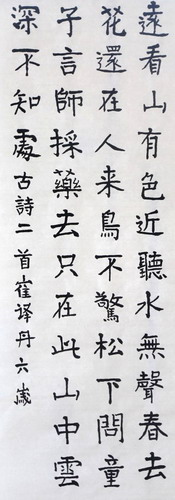 遠看山有色近聽水無聲春去
花還在人来鳥不驚松下問童
子言師採藥去只在此山中雲
深不知處古詩二首崔译丹六歲